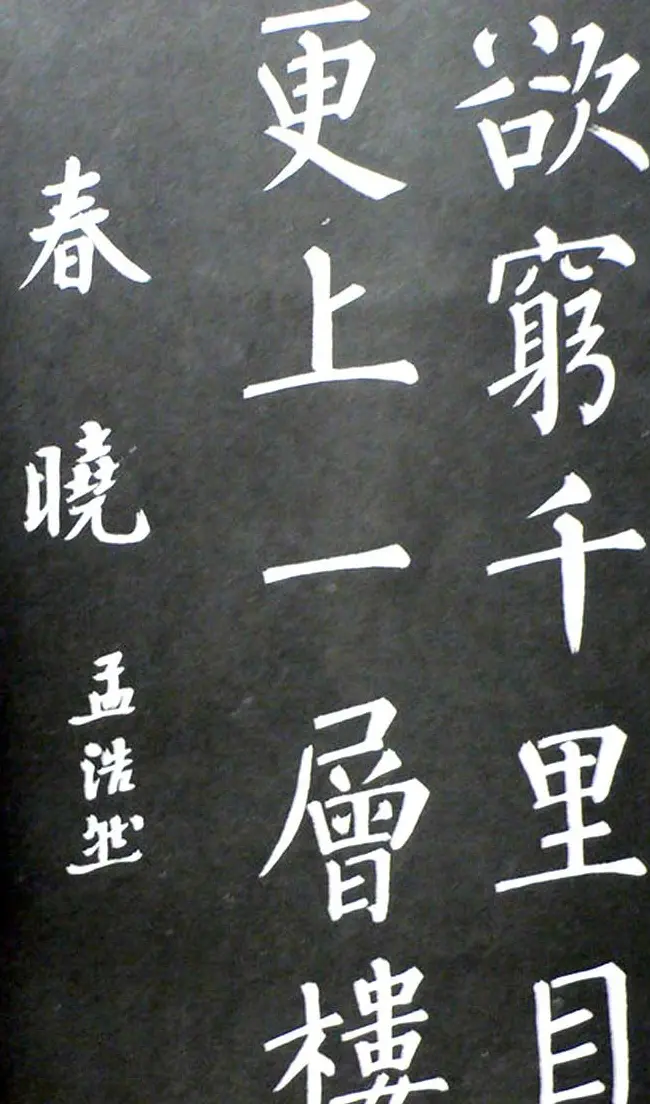 欲窮千里目
更上一層樓
春曉
孟浩然